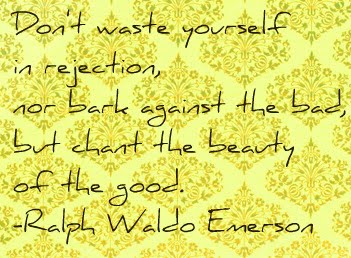 Don't waste yourself
in rejection,
nor bark against the bad,
but chant the beauty
of the good.
-Ralph Waldo Emerson